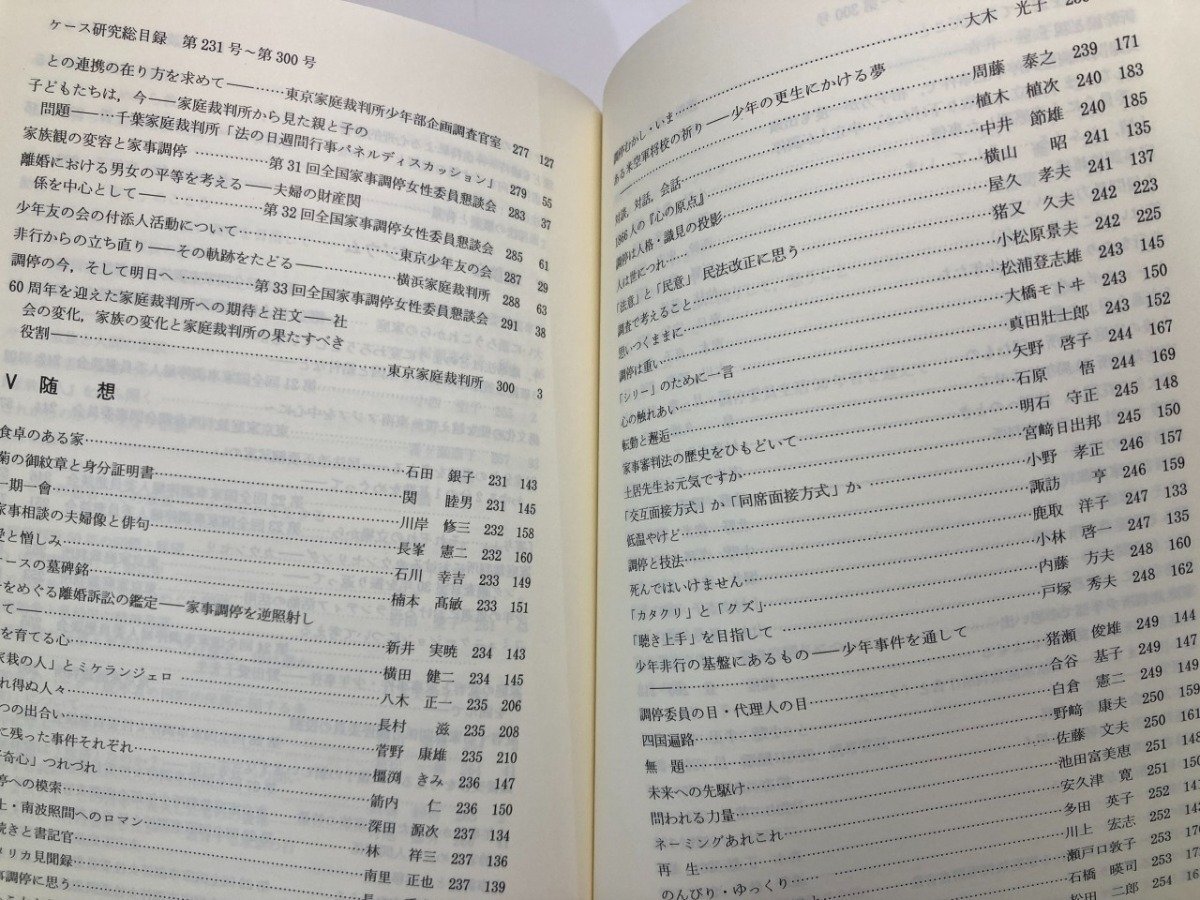 ケース研究総目録 第231号~第300号
との連携の在り方を求めて――東京家庭裁判所少年部企画調査官室 277 127
子どもたちは,今――家庭裁判所から見た親と子の
問題――千葉家庭裁判所「法の日週間行事パネルディスカッション」 279 55
家族観の変容と家事調停 第31回全国家事調停女性委員懇談会 283 37
離婚における男女の平等を考える――夫婦の財産関
係を中心として―― 第32回全国家事調停女性委員懇談会 285 61
少年友の会の付添人活動について 東京少年友の会 287 29
非行からの立ち直り――その軌跡をたどる―― 横浜家庭裁判所 288 63
調停の今,そして明日へ 第33回全国家事調停女性委員懇談会 291 38
60周年を迎えた家庭裁判所への期待と注文――社
会の変化,家族の変化と家庭裁判所の果たすべき
役割 東京家庭裁判所 300 3
V 随 想
食卓のある家 石田 銀子 231 143
菊の御紋章と身分証明書 関 睦男 231 145
一期一會 川岸 修三 232 158
家事相談の夫婦像と俳句 長峯 憲二 232 160
愛と憎しみ 石川 幸吉 233 149
ースの墓碑銘 楠本 高敏 233 151
をめぐる離婚訴訟の鑑定――家事調停を逆照射し
て―― 新井 実暁 234 143
を育てる心 横田 健二 234 145
家栽の人」とミケランジェロ 八木 正一 235 206
れ得ぬ人々 長村 滋 235 208
つの出合い 菅野 康雄 235 210
に残った事件それぞれ 橿渕 きみ 236 147
奇心」つれづれ 箭内 仁 236 150
停への模索 深田 源次 237 134
上・南波照間へのロマン 林 祥三 237 136
続きと書記官 南里 正也 237 139
メリカ見聞録
事調停に思う
大木 光子
調停むかし・いま
ある米空軍将校の祈り――少年の更生にかける夢 周藤 泰之 239 171
対話,対話,会話 植木 植次 240 183
1866人の『心の原点』 中井 節雄 240 185
調停は人格・識見の投影 横山 昭 241 135
人は世につれ 屋久 孝夫 241 137
「法意」と「民意」民法改正に思う 猪又 久夫 242 223
調査で考えること 小松原景夫 242 225
思いつくままに 松浦登志雄 243 145
調停は重い 大橋モトヰ 243 150
「シリー」のために一言 真田壯士郎 243 152
心の触れあい 矢野 啓子 244 167
転動と邂逅 石原 悟 244 169
家事審判法の歴史をひもどいて 明石 守正 245 148
土居先生お元気ですか 宮﨑日出邦 245 150
「交互面接方式」か「同席面接方式」か 小野 孝正 246 157
低温やけど 諏訪 亨 246 159
調停と技法 鹿取 洋子 247 133
死んではいけません 小林 啓一 247 135
「カタクリ」と「クズ」 内藤 方夫 248 160
「聴き上手」を目指して 戸塚 秀夫 248 162
少年非行の基盤にあるもの――少年事件を通して
―― 猪瀬 俊雄 249 144
調停委員の目・代理人の目 合谷 基子 249 147
四国遍路 白倉 憲二 249 149
無 題 野﨑 康夫 250 159
未来への先駆け 佐藤 文夫 250 161
問われる力量 池田富美恵 251 148
ネーミングあれこれ 安久津 寛 251 150
再 生 多田 英子 252 141
のんびり・ゆっくり 川上 宏志 252 143
瀬戸口敦子 253
石橋 暎司 253 175
松田 二郎 254